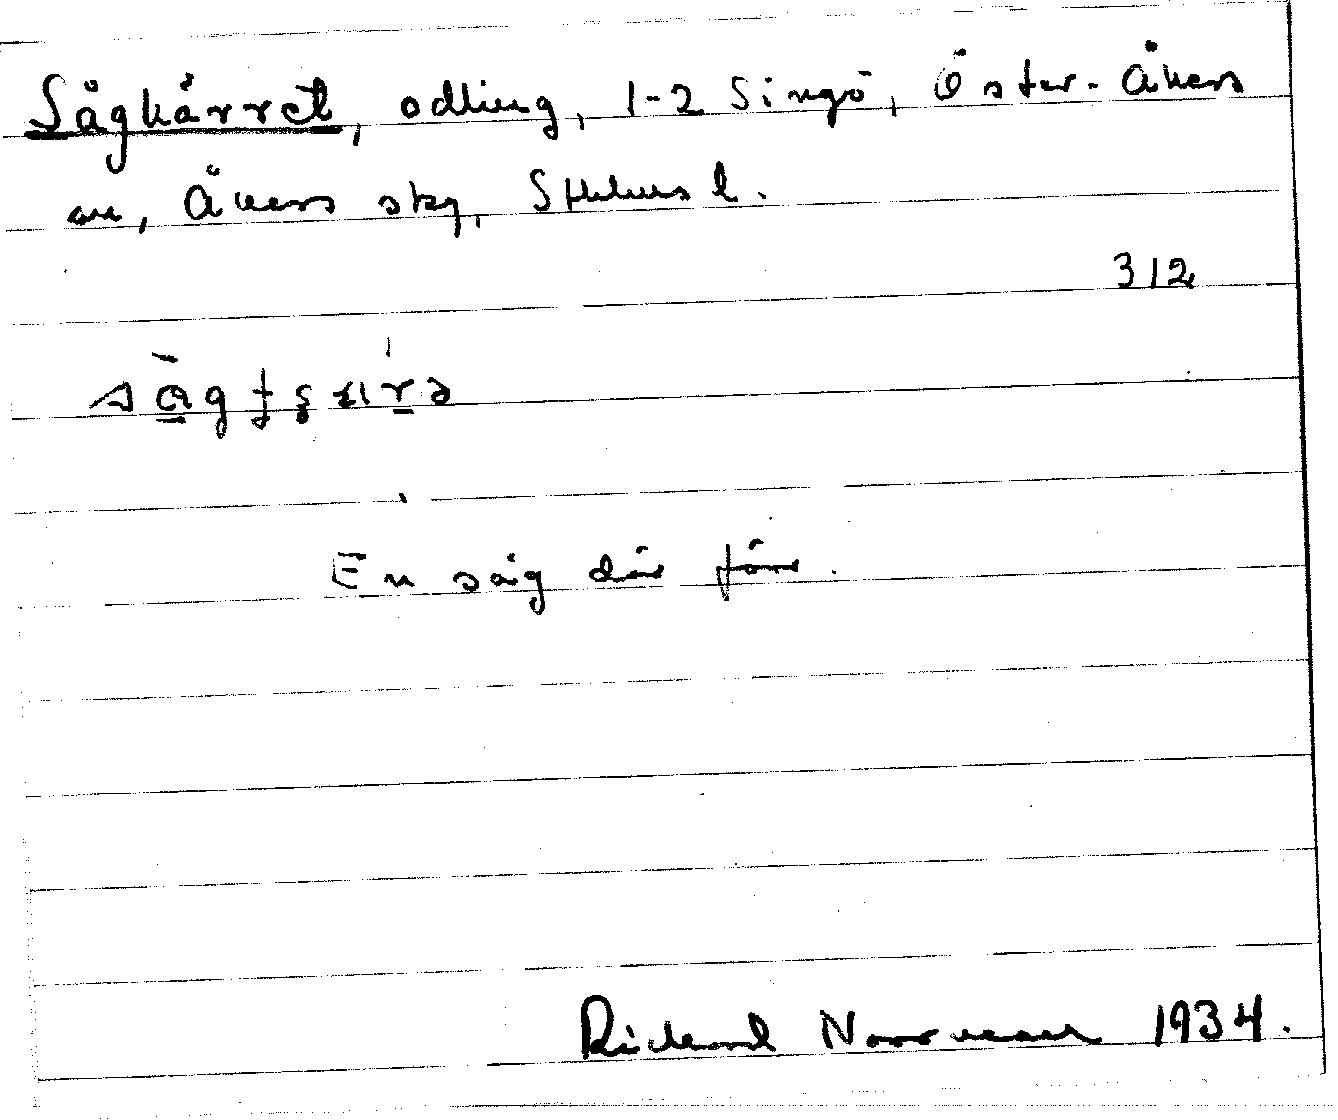 Sågkärret, odling, 1-2 Singö, Öster-Åkers
sn, Åkers skg, Sthlms l.
312
En såg där förr.
Rickard Norrman 1934.